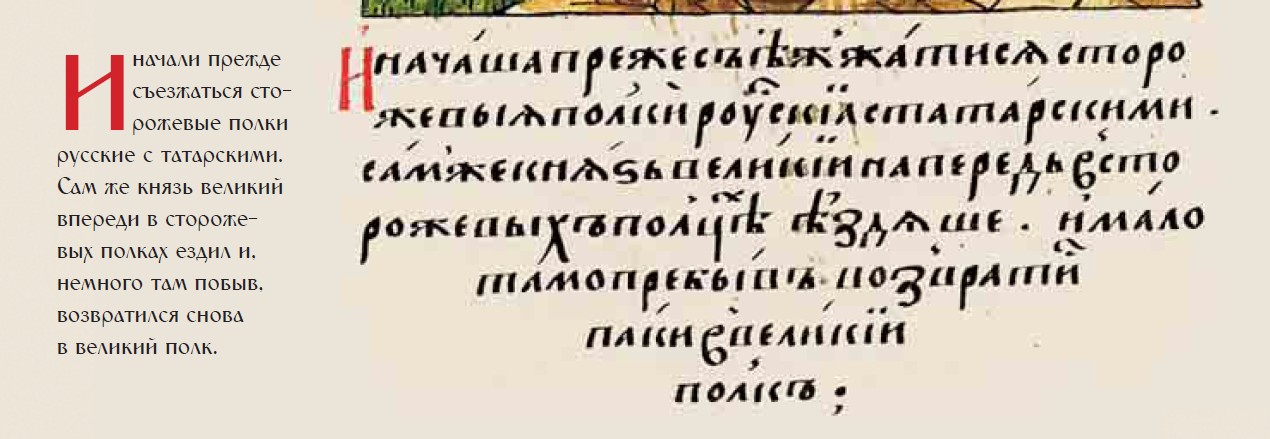 И начали прежде
съезжаться сто-
рожевые полки
русские с татарскими.
Сам же князь великий
впереди в стороже-
вых полках ездил и,
немного там побыв,
возвратился снова
в великий полк.
Иначашапрежесъѣжжатисѧсторо
жевыѧполкироускїѧстатарскими.
самжекнѧѕьвеликїйнапередьвсто
рожевыхъполцѣхъ ѣздѧше. ималов
тамопребывъ возврати
пакивъвеликїи
полкъ ;